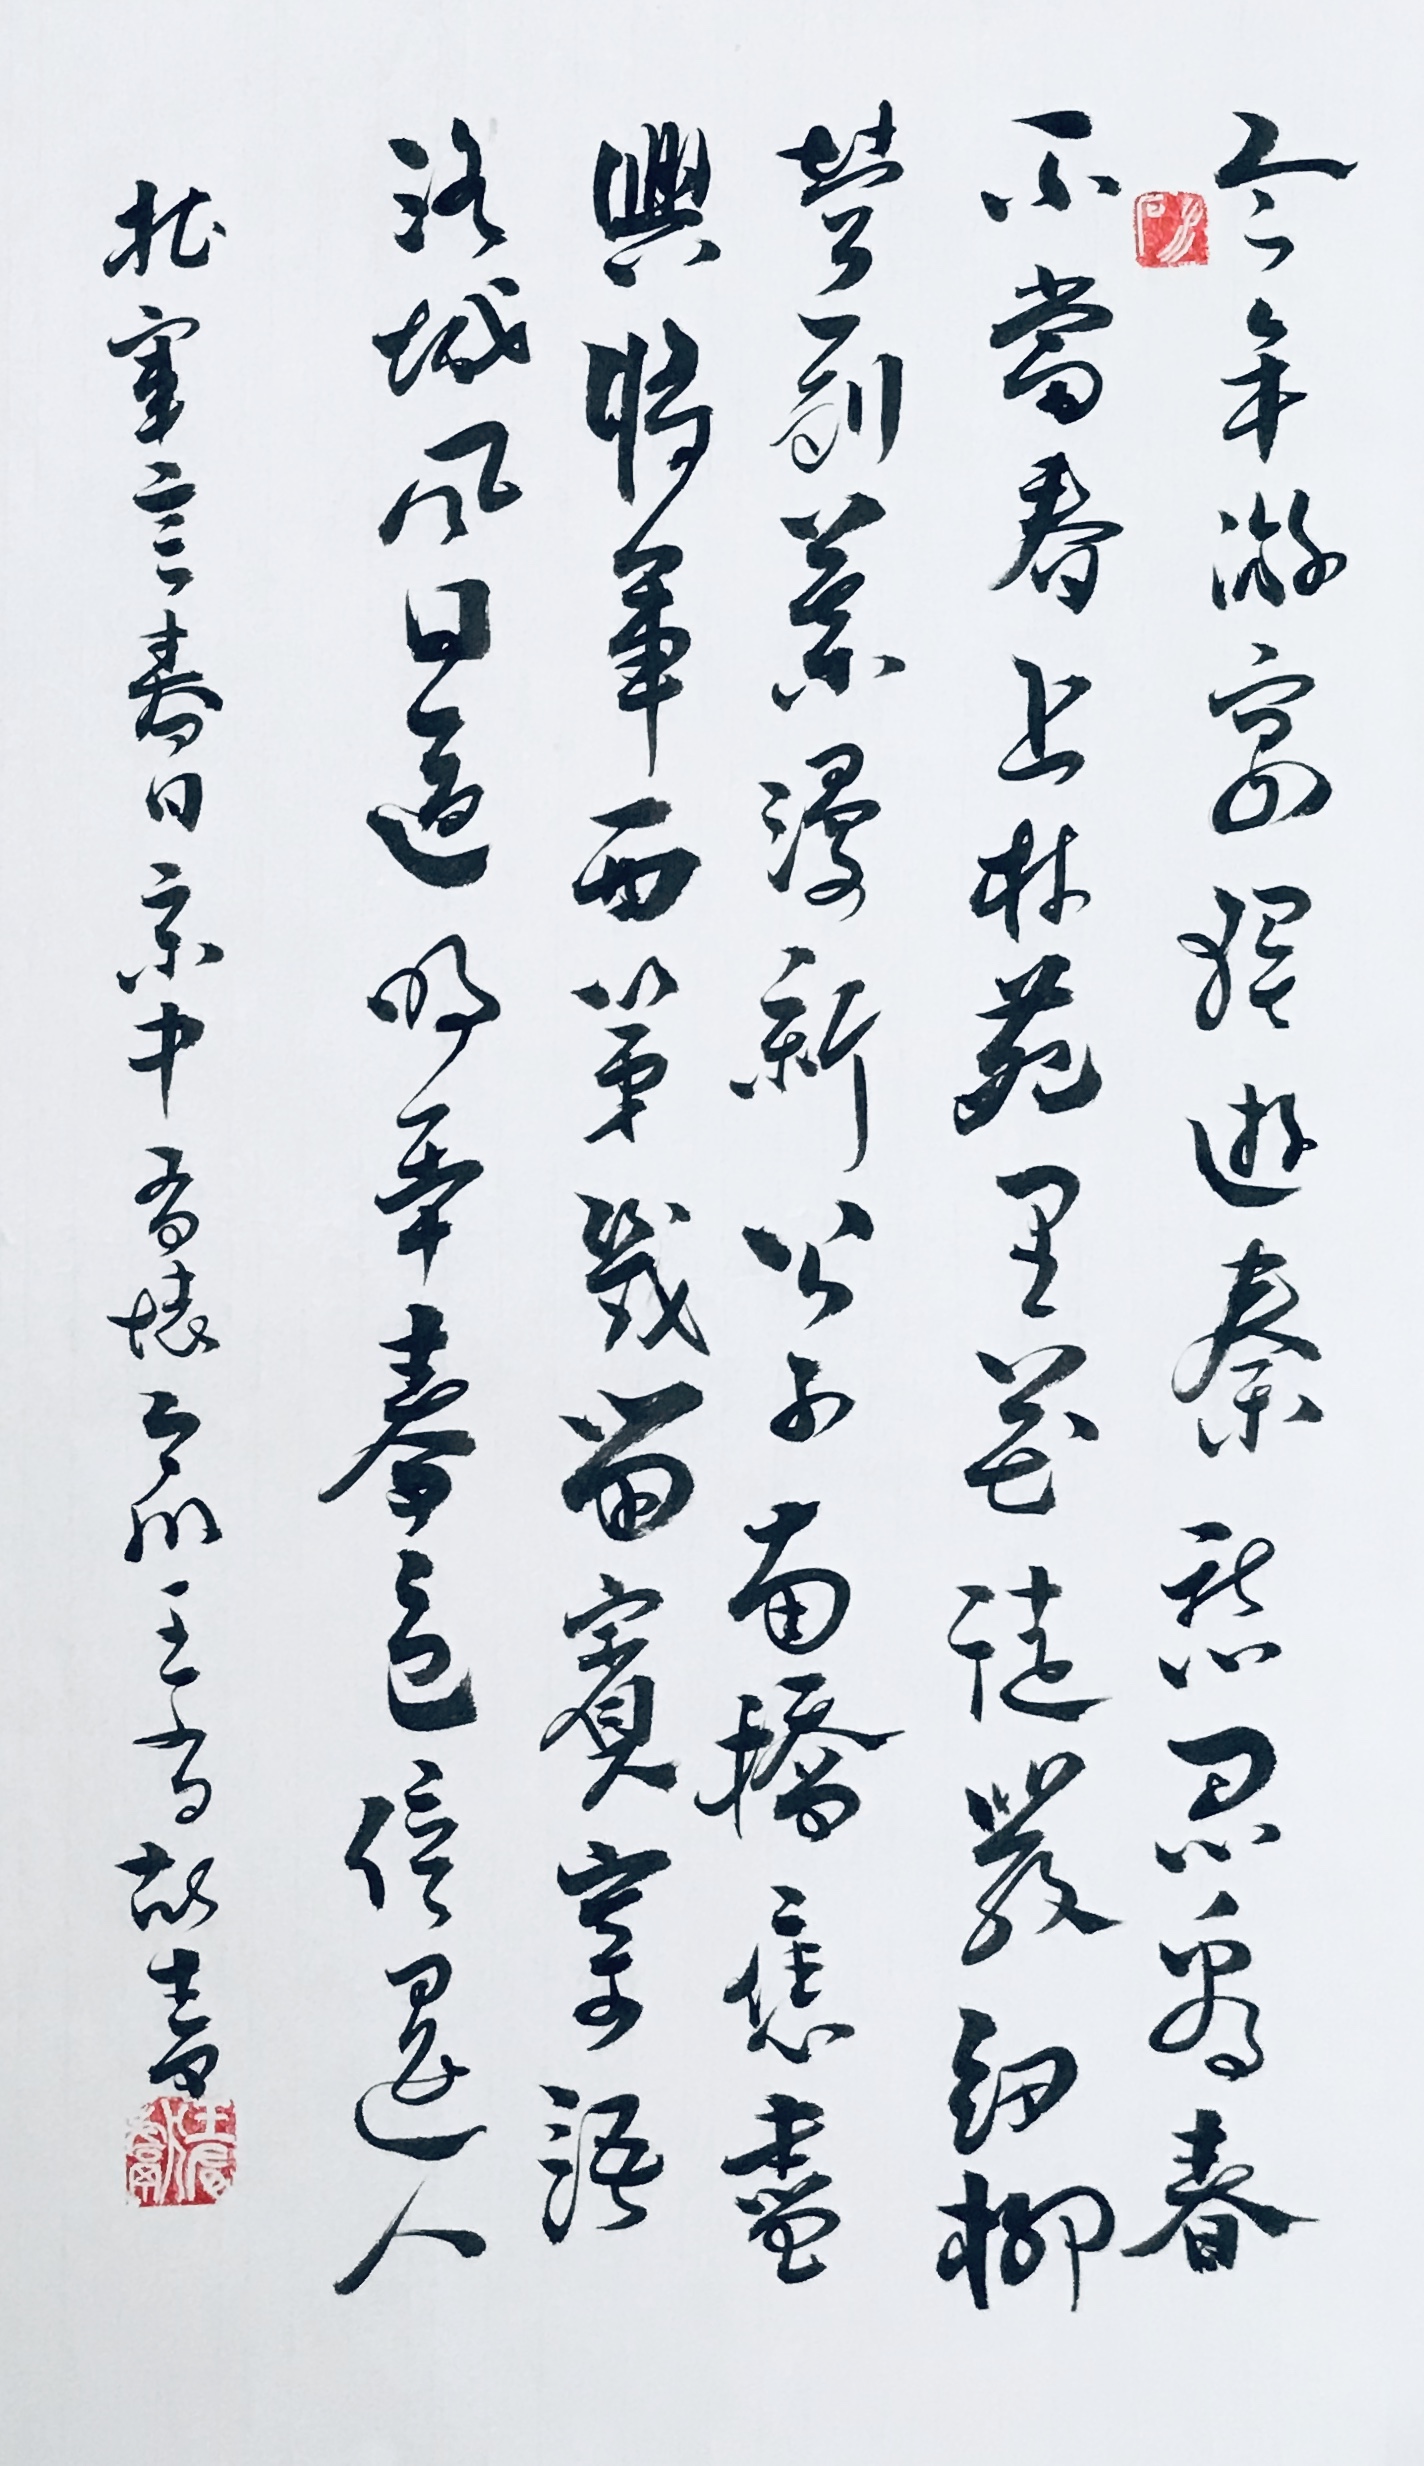 今年游寓獨遊秦愁思看春
不當春上林苑里花徒發細柳
營前葉漫新公子南橋應盡
興將軍西第幾留賓寄語
洛城風日道明年春色倍還人
杜審言春日京中有懷